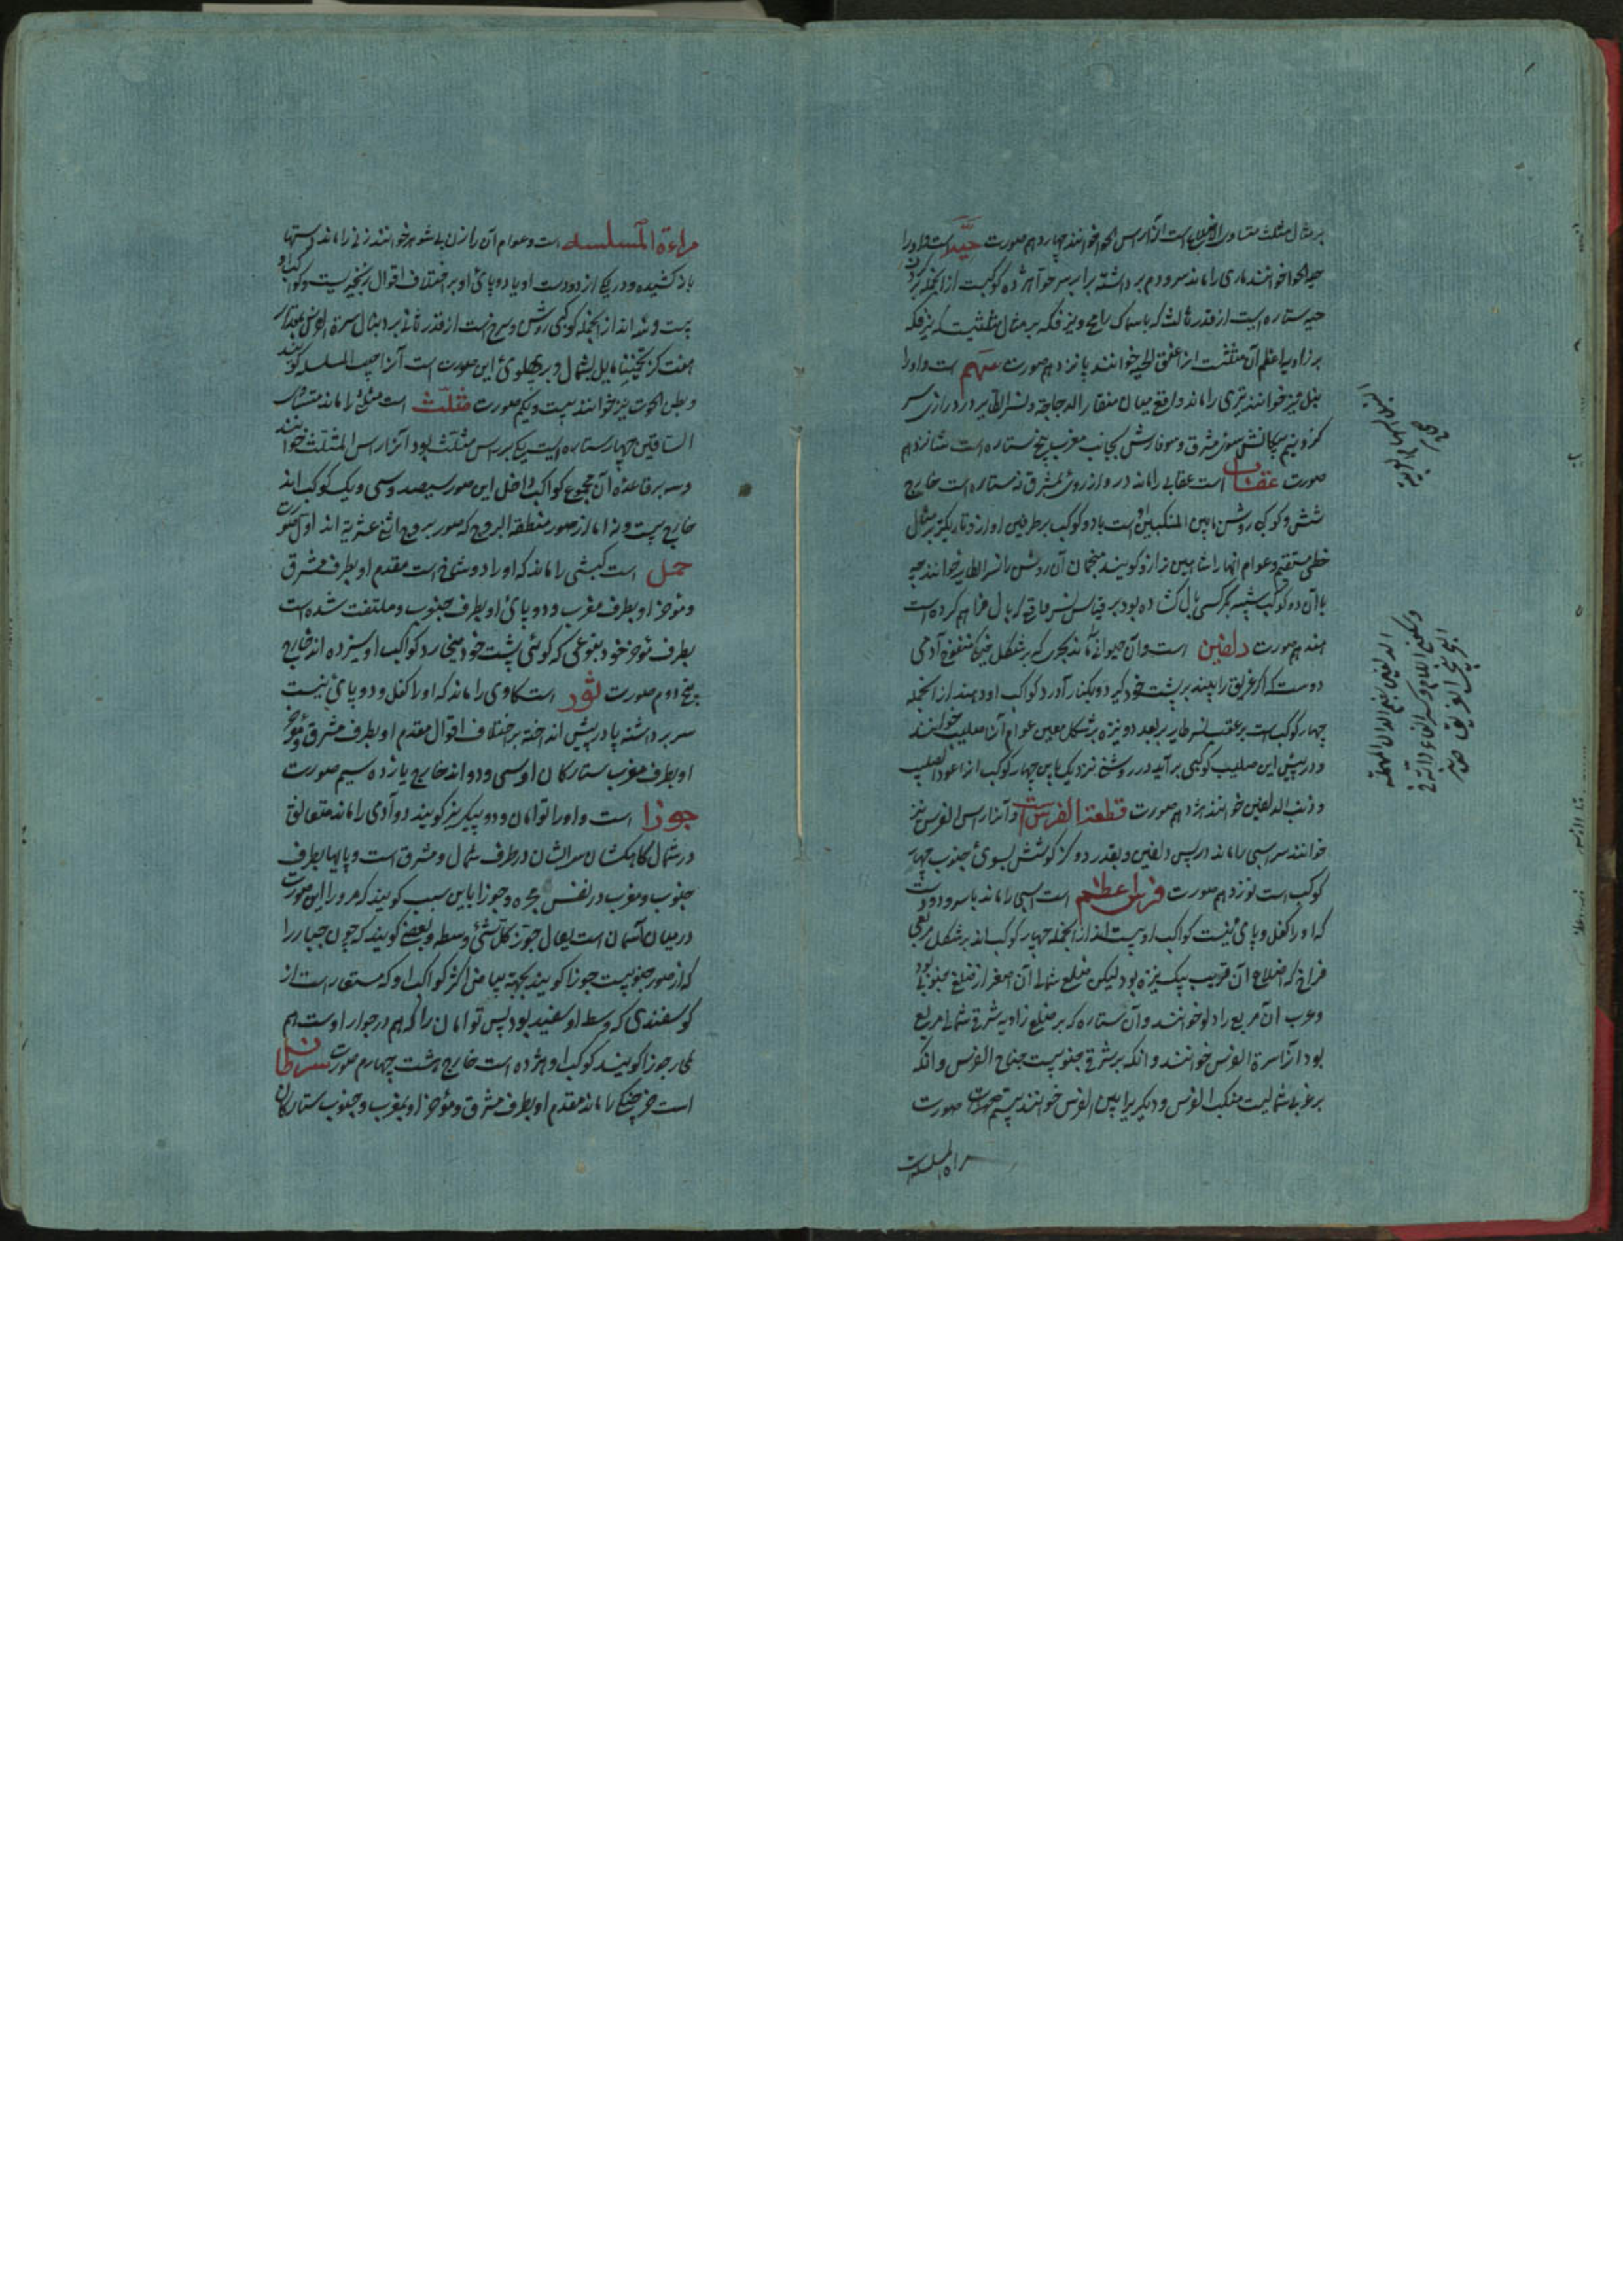 بر مثال مثلث متساوی الاضلاع است آنرا راس الحوا خوانند چهاردهم صورت حیّه است و او را
حیه الحوا خوانند ماری را ماند سر و دم برداشته برابر سر حوا هژده کوکبست از انجمله بر کردن
حیه ستاره ایست از قدر ثالث که با سماک رامح و نیز فکه بر مثال مثلثیست که نیز فکه
بر زاویه اعظم آن مثلثست انرا عنق الحیه خوانند پانزدهم صورت سهم است و او را
نیز خوانند تیری را ماند واقع میان منقار الدجاجه و نسر الطایر در درازی سر
کز و نیم پیکانش سوی مشرق و سوفارش بجانب مغرب پنج ستاره است شانزدهم
صورت عقاب است عقابی را ماند در و از روی بمشرق نه ستاره است خارج
شش و کوکب روشن مابین المنکبین او است با دو کوکب بر طرفین او از و تاریکتر بر مثال
خطی مستقیم و عوام انها را شاهین ترازو کویند منجمان آن روشن را نسر الطایر خوانند چه
با آن دو کوکب شبیه بکرکسی بال کشاده بود بر قیاس نسر واقع که بال فراهم کرده است
هفدهم صورت دلفین است و آن حیوانی ماند بحری که بر شکل خیک منفوخ آدمی
دوست که اکر غریق را بیند بر پشت خود کیرد و بکنار آورد کواکب او ده اند از انجمله
چهار کوکب است بر عقب نسر طایر بر بعد دو نیزه بر شکل معین عوام آن صلیب خوانند
و در پیش این صلیب کوکبی برآید در روشنی نزدیک باین چهار کوکب انرا عود الصلیب
و ذنب الدلفین خوانند هژدهم صورت قطعة الفرس است و آنرا راس الفرس نیز
خوانند سر اسبی را ماند در پس دلفین و بقدر دو کز کوشش بسوی جنوب چهار
کوکب است نوزدهم صورت فرس اعظم است اسبی را ماند با سر و دو دست
که او را کفل و پای نیست کواکب او بیست اند از انجمله چهار کوکب اند بر شکل مربعی
فراخ که اضلاع آن قریب بیک نیزه بود لیکن ضلع شمالی آن اصغر از ضلع جنوبی بود
و عرب آن مربع را دلو خوانند و آن ستاره که بر ضلع زاویه شرقی شمالی مربع
بود آنرا سرة الفرس خوانند و انکه بر شرقی جنوبیست جناح الفرس و انکه
بر غربی شمالیست منکب الفرس و دیکر را متن الفرس خوانند بیستم صورت
مراة المسلسله است
مراءة المسلسله است و عوام آن را زن بی شوهر خوانند زنی را ماند دستها
باز کشیده و در یکی از دو دست او یا دو پای او بر اختلاف اقوال زنجیریست و کواکب او
بیست و سه اند از انجمله کوکبی روشن و سرخ است از قدر ثانی بر دنبال سرة الفرس بمقدار
هفت کز تخمینا مایل بشمال و بر پهلوی این صورت است آنرا جنب المسلسله کویند
و بطن الحوت نیز خوانند بیست و یکم صورت مثلّث است مثلثی را ماند متساوی
الساقین چهار ستاره است یکی بر راس مثلث بود آنرا راس المثلث خوانند
و سه بر قاعده آن مجموع کواکب داخل این صور سیصد و سی و یک کوکب اند
خارج بیست و نه اما از صور منطقة البروج که صور بروج اثنی عشریه اند اول صورت
حمل است کبشی را ماند که او را دو شاخ است مقدم او بطرف مشرق
و موخر او بطرف مغرب و دو پای او بطرف جنوب و ملتفت شده است
بطرف موخر خود بنوعی که کوئی پشت خود میخارد کواکب او سیزده اند خارج
پنج دوم صورت ثور است کاوی را ماند که او را کفل و دو پای نیست
سر برداشته یا در پیش انداخته بر اختلاف اقوال مقدم او بطرف مشرق و موخر
او بطرف مغرب ستارکان او سی و دو اند خارج یازده سیم صورت
جوزا است و او را توامان و دو پیکر نیز کویند دو آدمی را ماند متعانق
در شمال کاهکشان سرایشان در طرف شمال و مشرق است و پایها بطرف
جنوب و مغرب در نفس مجره و جوزا باین سبب کویند که مر و را این صورت
در میان آسمان است یقال جوز کل شئ وسطه و بعضی کویند که چون جبار را
که از صور جنوبیست جوزا کویند بجهة بیاض اکثر کواکب او که مستعار است از
کوسفندی که وسط او سفید بود پس توامان را که هم در جوار اوست هم
جوزا کویند کوکب او هژده است خارج هشت چهارم صورت سرطان
است خرچنکی را ماند مقدم او بطرف مشرق و موخر او بمغرب و جنوب ستارکان